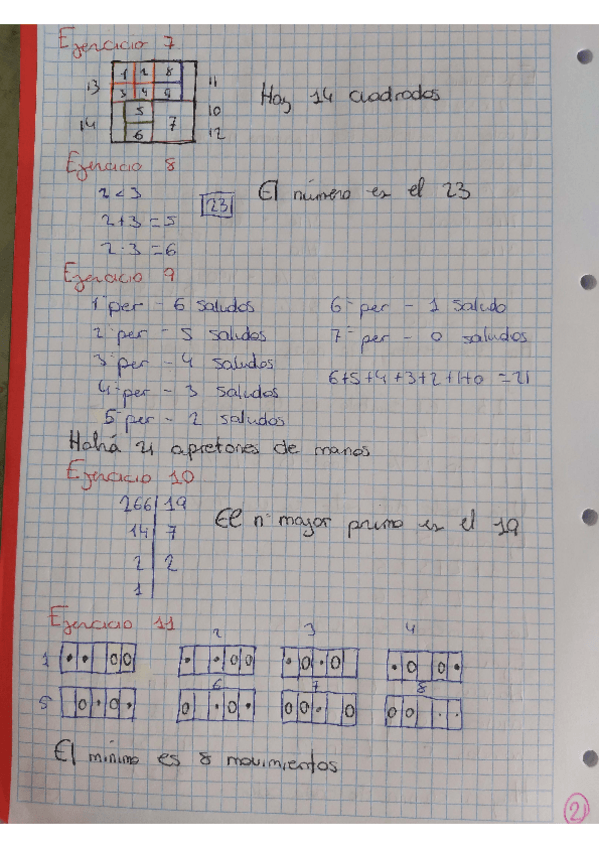 Ejercicio 7
1 2 8
13 3 4 9 11
5 10
14 6 7 12
Hay 14 cuadrados
Ejercicio 8
2 < 3
2+3 = 5
2·3 = 6
23
El número es el 23
Ejercicio 9
1ª per - 6 saludos
2ª per - 5 saludos
3ª per - 4 saludos
4ª per - 3 saludos
5ª per - 2 saludos
6ª per - 1 saludo
7ª per - 0 saludos
6+5+4+3+2+1+0 = 21
Habrá 21 apretones de manos
Ejercicio 10
266 | 19
14 | 7
2 | 2
1 |
El nº mayor primo es el 19
Ejercicio 11
2 3 4
1
6 7 8
5
El mínimo es 8 movimientos
2